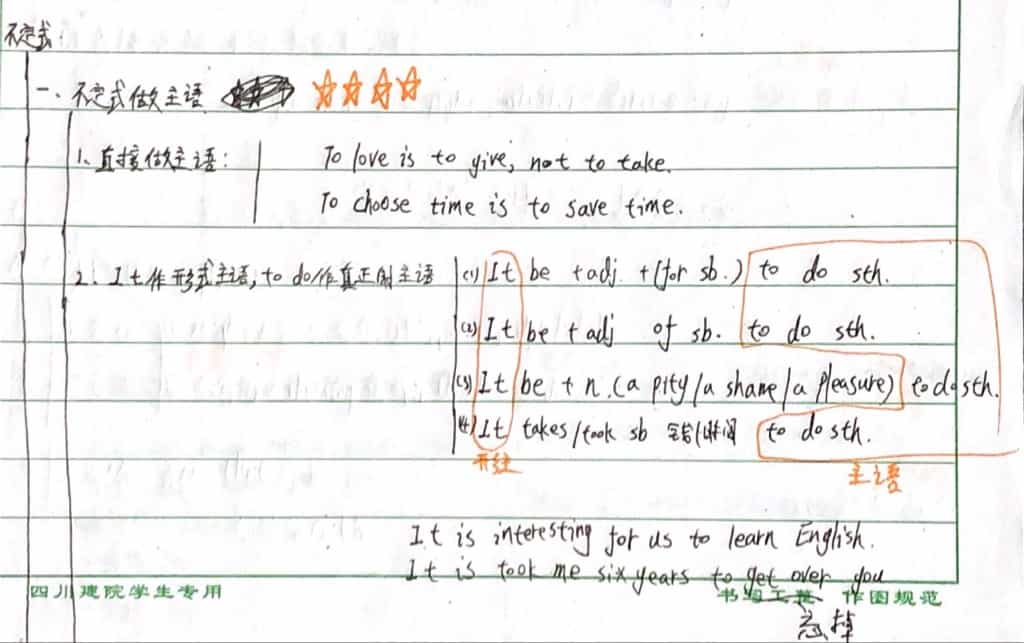 不定式
一、不定式做主语 ☆☆☆☆
1、直接做主语: To love is to give, not to take.
To choose time is to save time.
2、It作形式主语, to do作真正的主语 (1) It be +adj. +(for sb.) to do sth.
(2) It be +adj of sb. to do sth.
(3) It be + n. (a pity/a shame/a pleasure) to do sth.
(4) It takes/took sb 金钱/时间 to do sth.
形主 主语
It is interesting for us to learn English.
It is took me six years to get over you
四川建院学生专用 书写工整 作图规范
忘掉